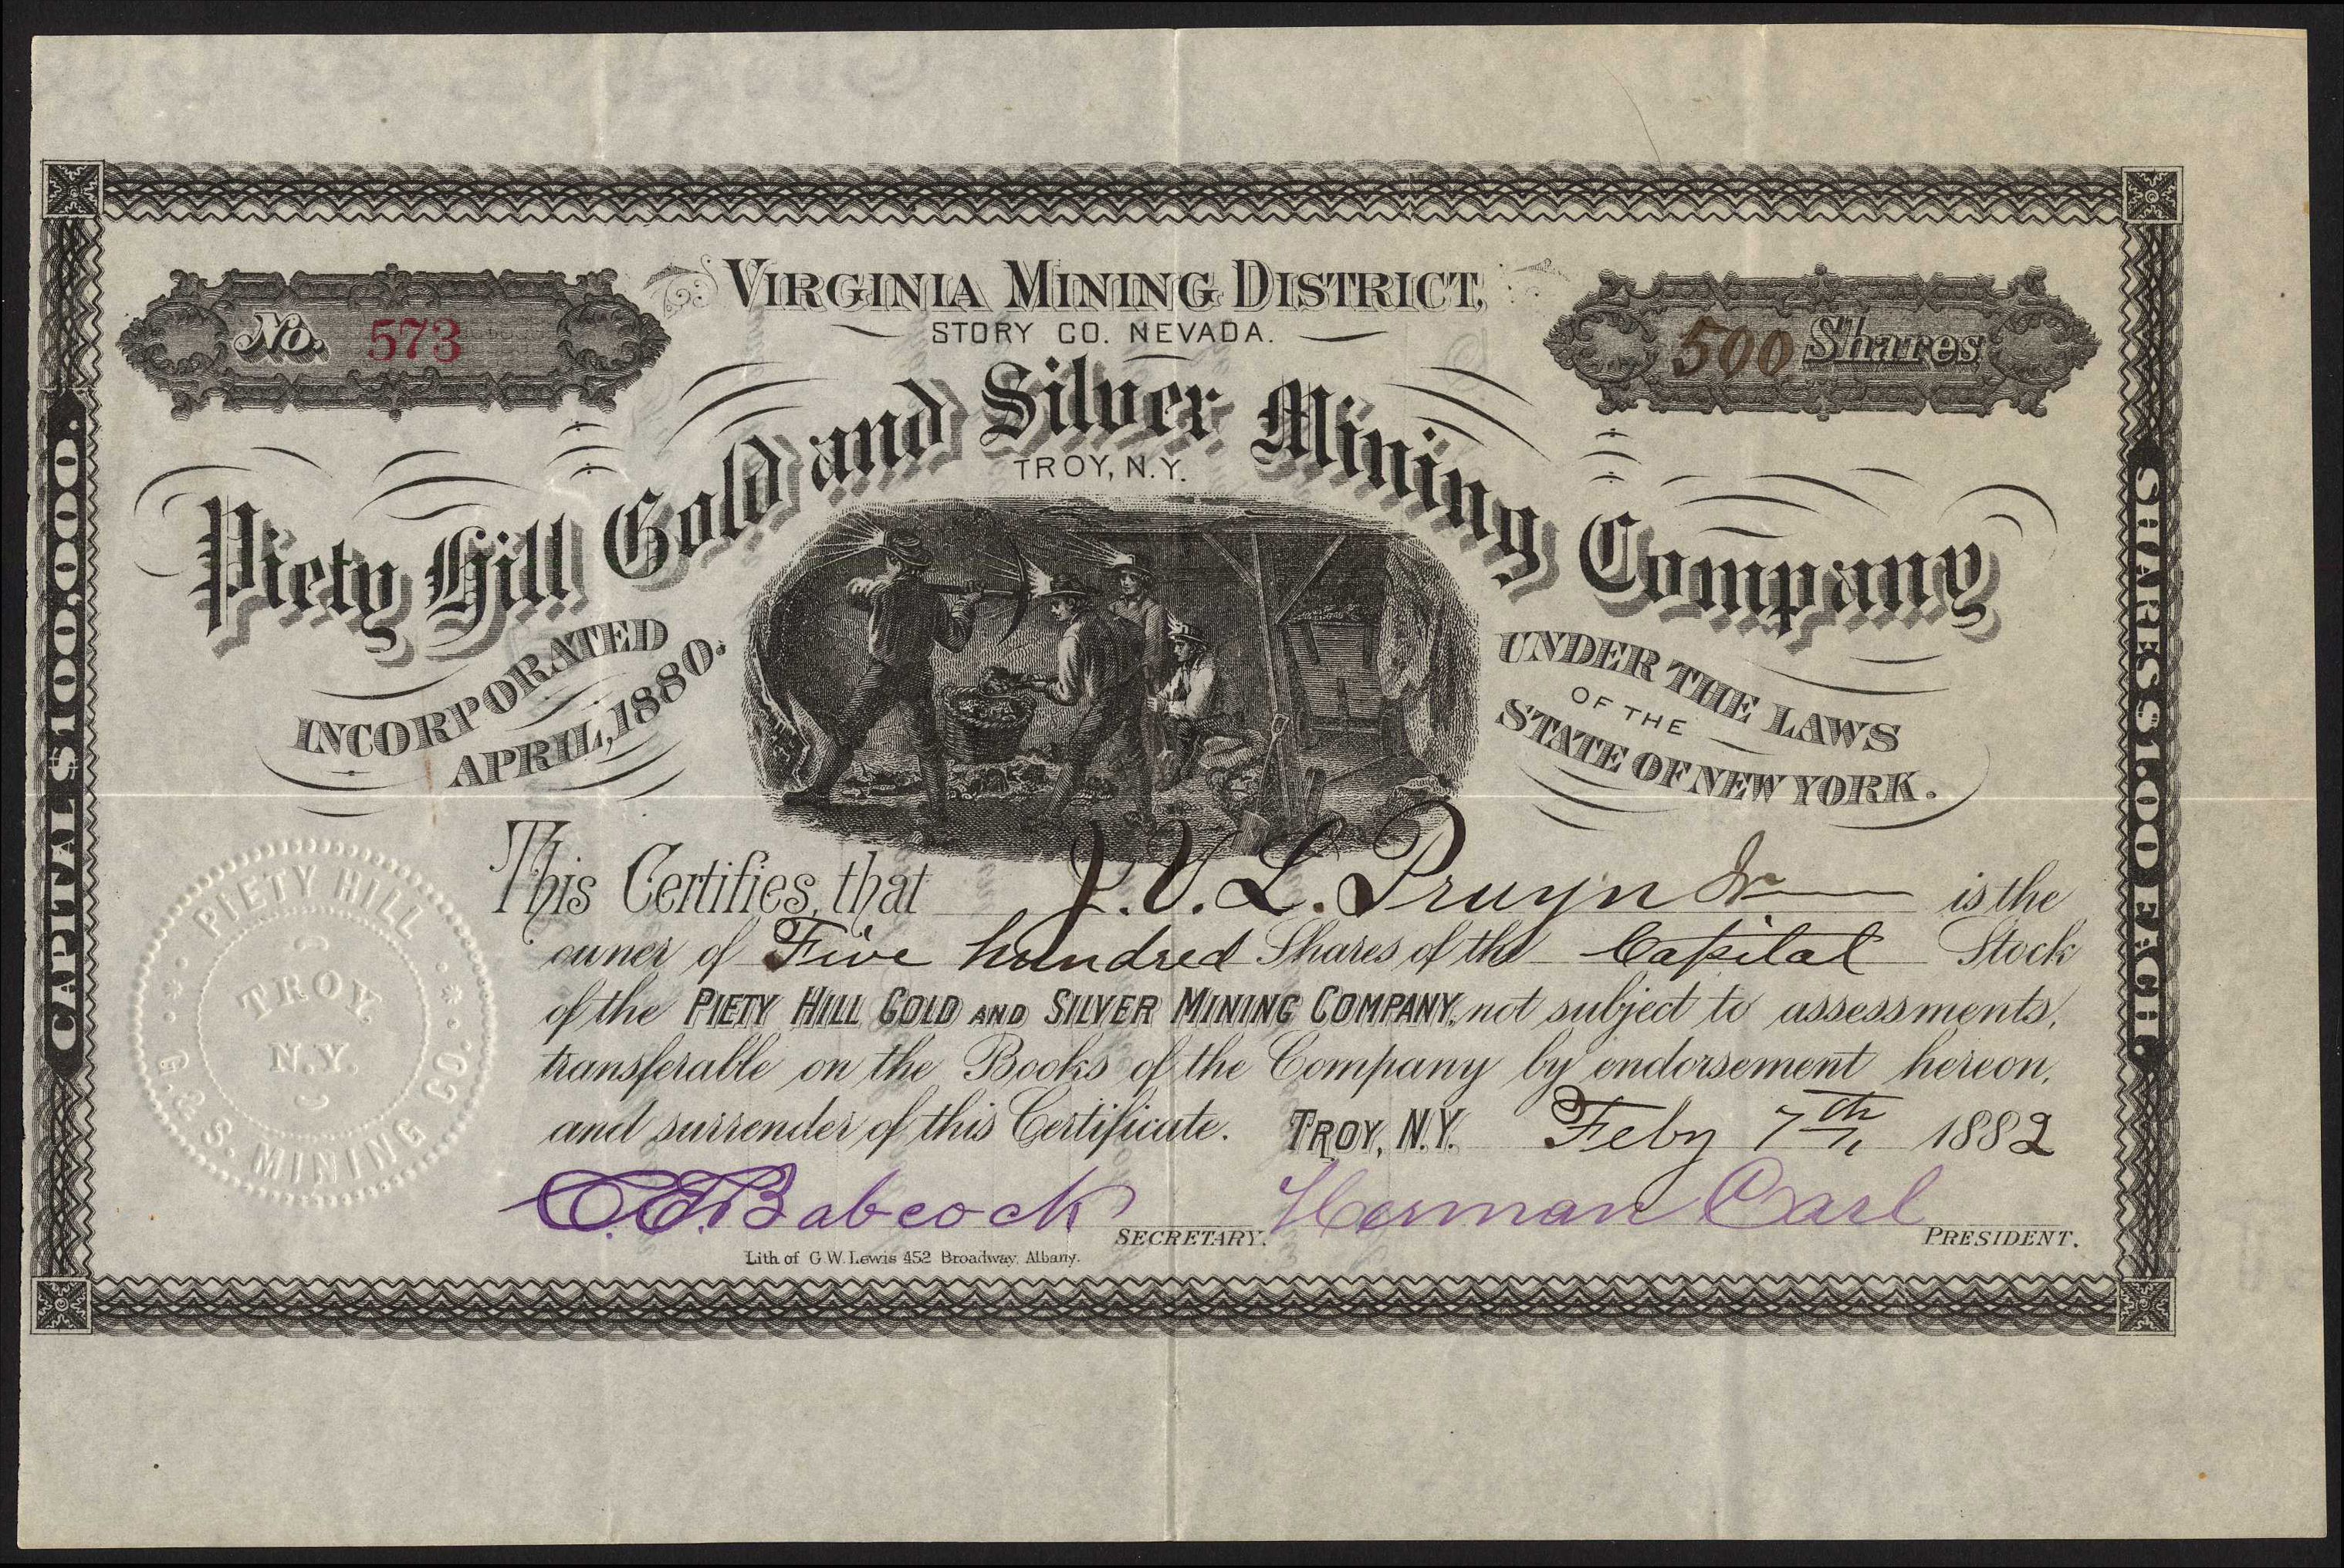 VIRGINIA MINING DISTRICT,
STORY CO. NEVADA.
No. 573
500 Shares
Piety Hill Gold and Silver Mining Company
TROY, N.Y.
INCORPORATED
APRIL, 1880.
UNDER THE LAWS
OF THE
STATE OF NEW YORK.
CAPITAL $100,000.
SHARES $1.00 EACH.
This Certifies, that J. V. L. Pruyn Jr is the
owner of Five hundred Shares of the Capital Stock
of the PIETY HILL GOLD AND SILVER MINING COMPANY, not subject to assessments,
transferable on the Books of the Company by endorsement hereon,
and surrender of this Certificate. TROY, N.Y. Feby 7th 1882
C. E. Babcock SECRETARY. Herman Carl PRESIDENT.
Lith of G. W. Lewis 452 Broadway, Albany.
PIETY HILL
G. & S. MINING CO.
TROY
N.Y.